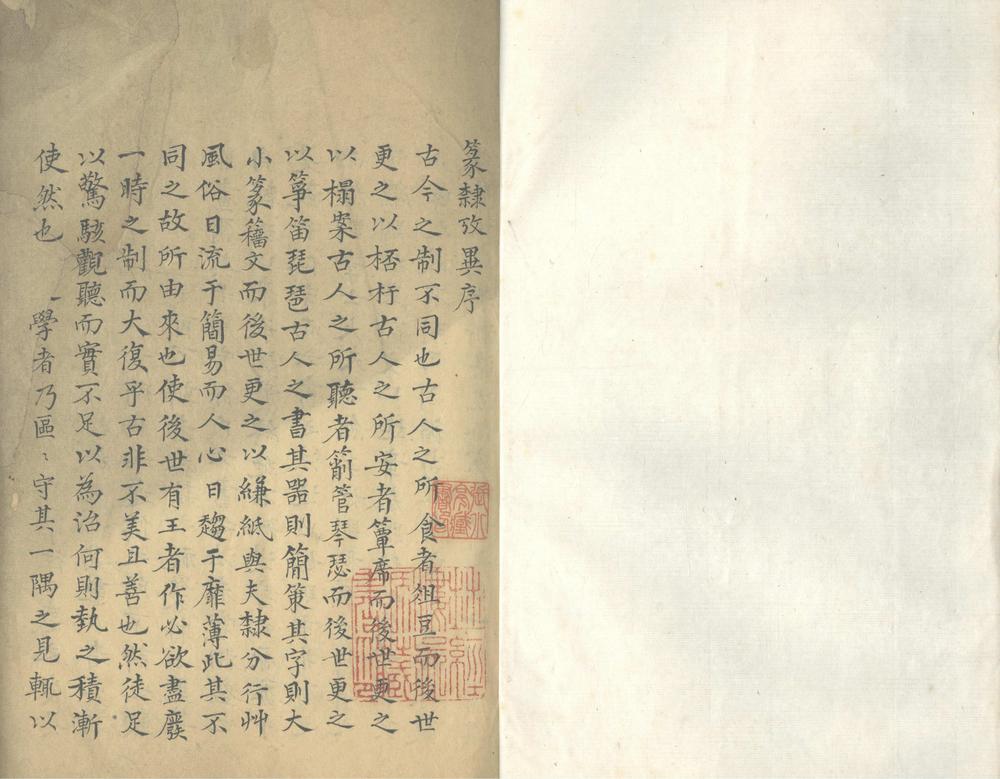 篆隸攷異序
古今之制不同也古人之所食者俎豆而後世
更之以桮杅古人之所安者簟席而後世更之
以榻案古人之所聽者箾管琴瑟而後世更之
以箏笛琵琶古人之書其器則簡策其字則大
小篆籀文而後世更之以縑紙與夫隸分行艸
風俗日流于簡易而人心日趨于靡薄此其不
同之故所由來也使後世有王者作必欲盡廢
一時之制而大復乎古非不美且善也然徒足
以驚駭觀聽而實不足以為治何則執之積漸
使然也 一學者乃區〻守其一隅之見輒以